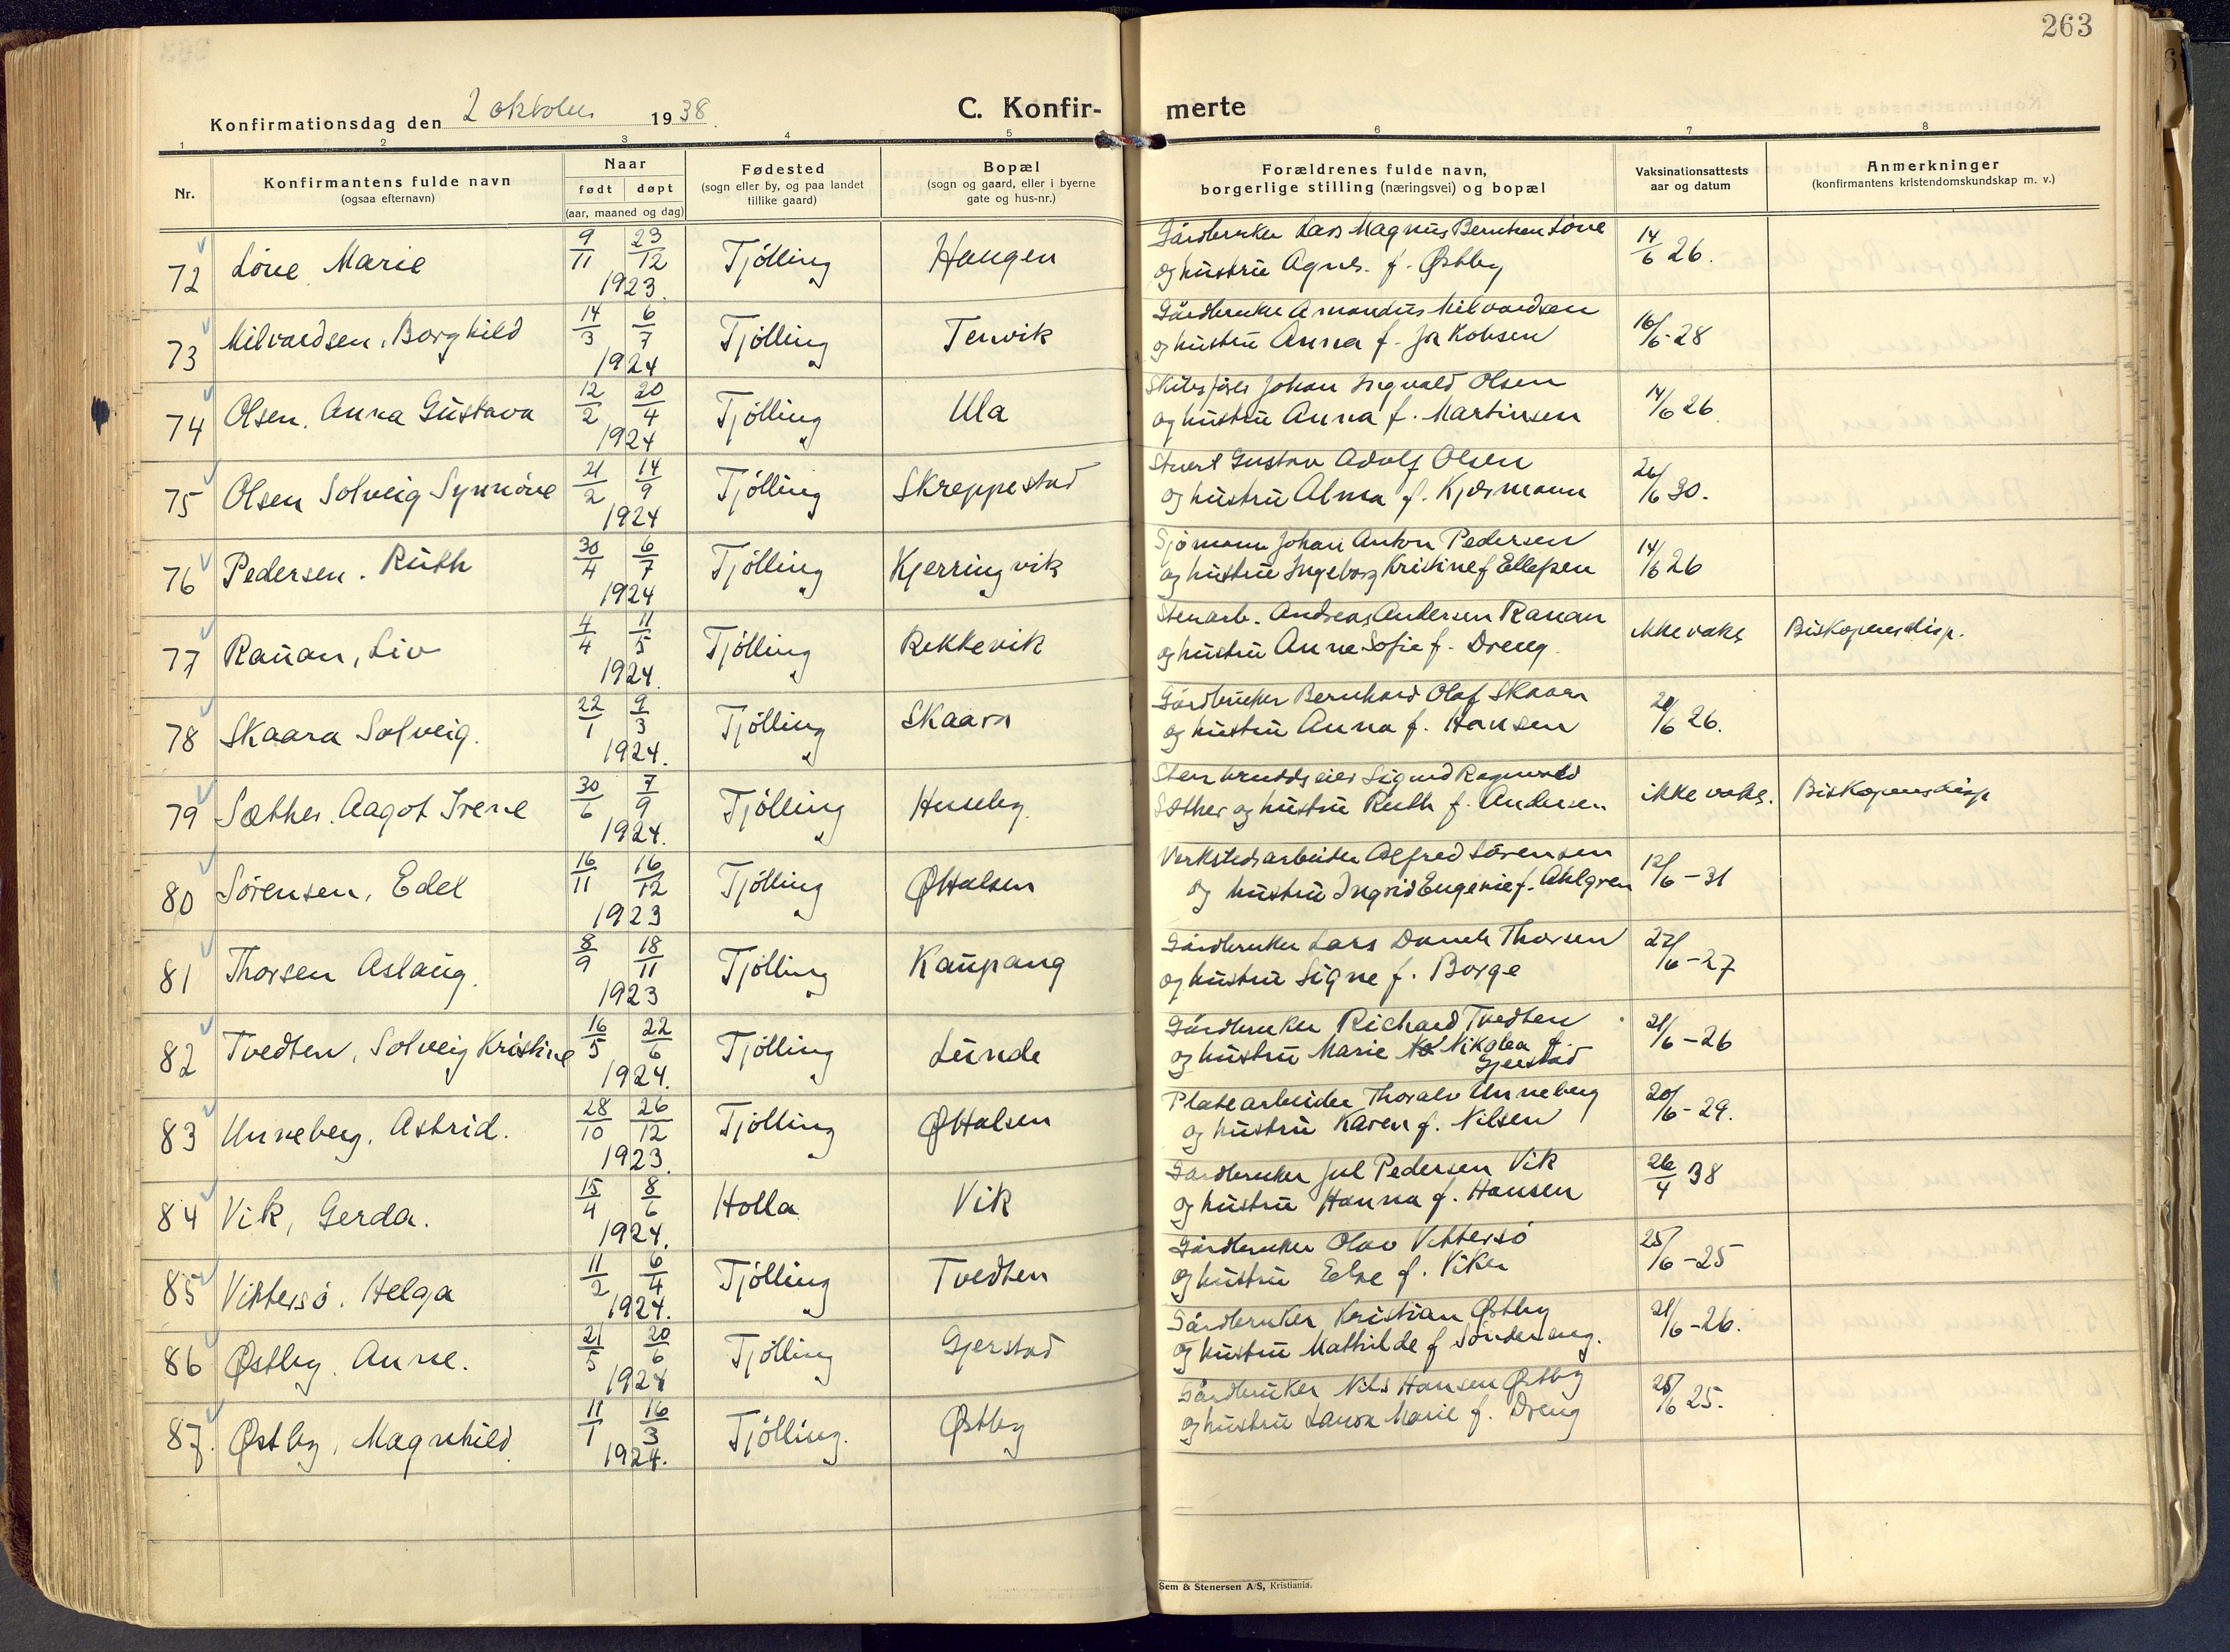 263
Konfirmationsdag den 2 oktober 1938.
C. Konfir-
merte
1 2 3 4 5 6 7 8
Nr.
Konfirmantens fulde navn
(ogsaa efternavn)
Naar
født døpt
(aar, maaned og dag)
Fødested
(sogn eller by, og paa landet
tillike gaard)
Bopæl
(sogn og gaard, eller i byerne
gate og hus-nr.)
Forældrenes fulde navn,
borgerlige stilling (næringsvei) og bopæl
Vaksinationsattests
aar og datum
Anmerkninger
(konfirmantens kristendomskundskap m. v.)
72 Løve Marie 9/11 23/12 1923. Tjølling Haugen
Gårdbruker Lars Magnus Berntsen Løve
og hustru Agnes. f. Østby
14/6 26.
73 Milvardsen, Borghild 14/3 6/7 1924 Tjølling Tenvik
Gårdbruker Amandus Milvardsen
og hustru Anna f. Jakobsen
16/6-28
74 Olsen, Anna Gustava 12/2 20/4 1924 Tjølling Ula
Skibsfører Johan Ingvald Olsen
og hustru Anna f. Martinsen
14/6 26
75 Olsen Solveig Synnøve 21/2 14/9 1924 Tjølling Skreppestad
Stuert Gustav Adolf Olsen
og hustru Alma f. Kjærmann
26/6 30.
76 Pedersen. Ruth 30/4 6/7 1924 Tjølling Kjerringvik
Sjømann Johan Anton Pedersen
og hustru Ingeborg Kristine f Ellefsen
14/6 26
77 Rauan, Liv 4/4 11/5 1924. Tjølling Rekkevik
Stenarb. Andreas Andersen Rauan
og hustru Anne Sofie f. Dreng.
ikke vaks
Biskopens disp.
78 Skaara Solveig. 22/1 9/3 1924. Tjølling Skaara
Gårdbruker Bernhard Olaf Skaara
og hustru Anna f. Hansen
/6 26.
79 Sæther. Aagot Irene 30/6 7/9 1924. Tjølling Huseby.
Stenbruddseier Sigurd Ragnvald
Sæther og hustru Ruth f. Andersen
ikke vaks.
Biskopens disp
80 Sørensen, Edel 16/11 16/12 1923 Tjølling ØHalsen
Verkstedsarbeider Alfred Sørensen
og hustru Ingrid Eugenie f. Ahlgren
12/6-31
81 Thorsen Aslaug. 8/9 18/11 1923 Tjølling Kaupang
Gårdbruker Lars Thorsen
og hustru Signe f. Borge
27/6-27
82 Tvedten, Solveig Kristine 16/5 22/6 1924. Tjølling Lunde
Gårdbruker Richard Tvedten
og hustru Marie Nikolea f.
Gjerstad
21/6-26
83 Unneberg, Astrid. 28/10 26/12 1923. Tjølling ØHalsen
Platearbeider Thoralv Unneberg
og hustru Karen f. Nilsen
20/6-29.
84 Vik, Gerda. 15/4 8/6 1924. Holla Vik
Gårdbruker Jul Pedersen Vik
og hustru Hanna f. Hansen
26/4 38
85 Vittersø. Helga 11/2 6/4 1924. Tjølling Tvedten
Gårdbruker Olav Vittersø
og hustru f. Viken
25/6-25
86 Østby. Anne. 21/5 20/6 1924 Tjølling Gjerstad
Gårdbruker Kristian Østby
og hustru Mathilde f Søndereng.
21/6-26.
87. Østby, Magnhild. 11/1 16/3 1924. Tjølling. Østby
Gårdbruker Nils Hansen Østby
og hustru Laura Marie f. Dreng
25/6 25.
Sem & Stenersen A/S, Kristiania.